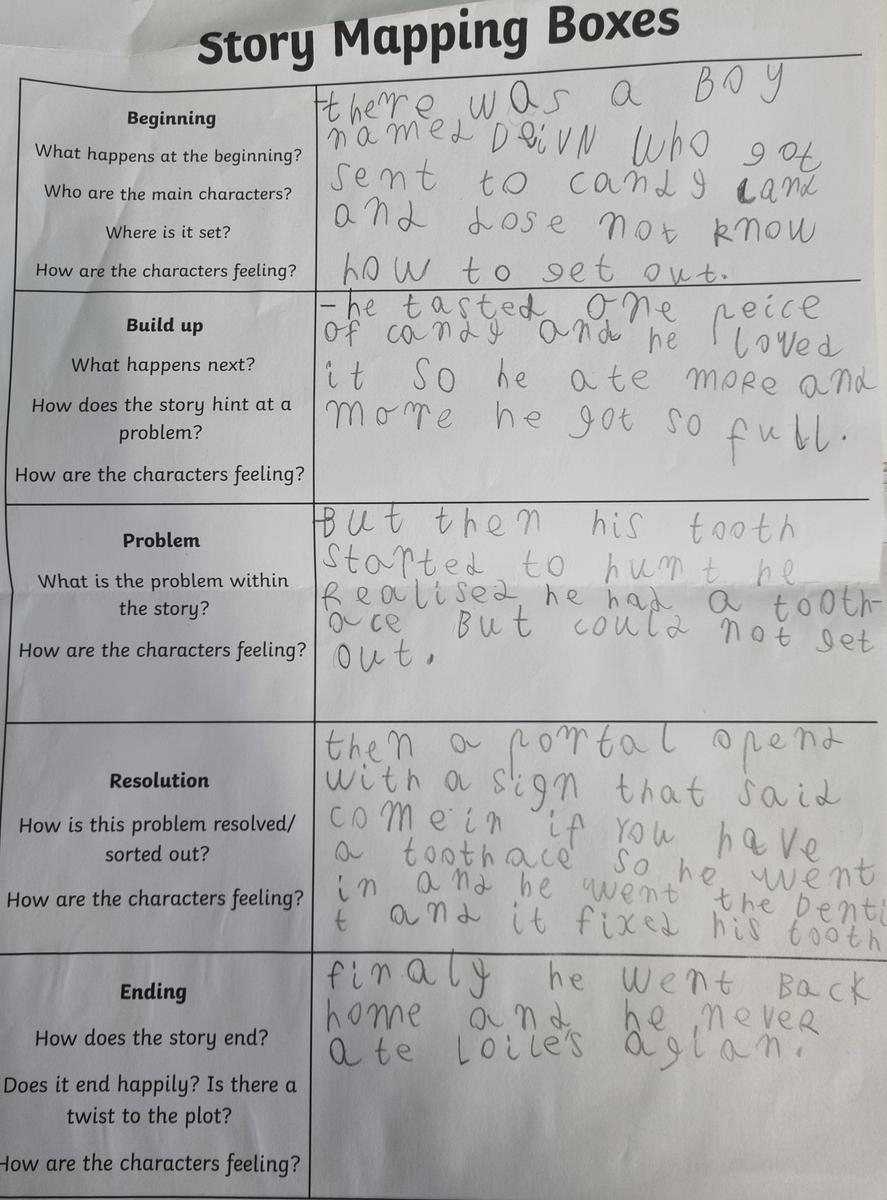 Story Mapping Boxes
Beginning
What happens at the beginning?
Who are the main characters?
Where is it set?
How are the characters feeling?
there was a BOY
named DeiVN Who got
sent to candy Land
and dose not know
how to get out.
Build up
What happens next?
How does the story hint at a
problem?
How are the characters feeling?
he tasted one peice
of candy and he loved
it so he ate more and
more he got so full.
Problem
What is the problem within
the story?
How are the characters feeling?
But then his tooth
started to hurt he
Realised he had a tooth-
ace But could not get
out.
Resolution
How is this problem resolved/
sorted out?
How are the characters feeling?
then a portal opend
with a sign that said
come in if You have
a toothace so he went
in and he went the Denti
t and it fixed his tooth
Ending
How does the story end?
Does it end happily? Is there a
twist to the plot?
How are the characters feeling?
finaly he went Back
home and he never
ate Loile's agian.